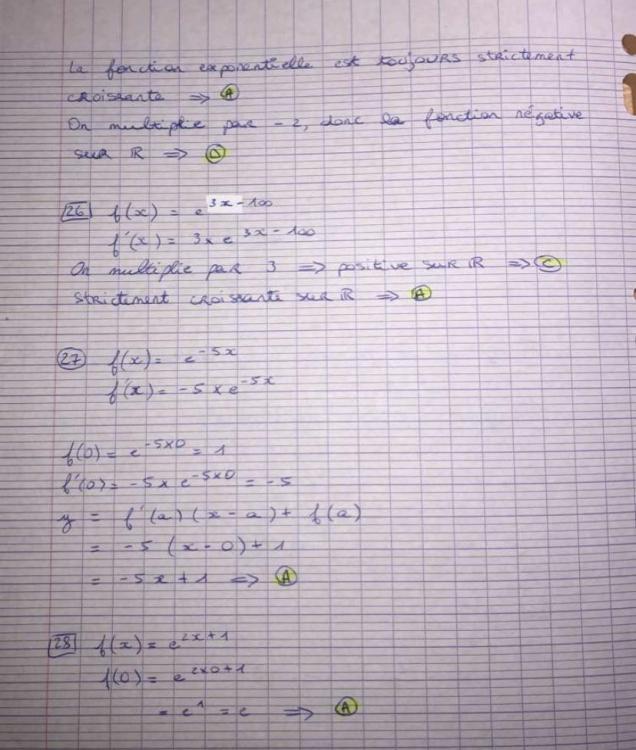 La fonction exponentielle est toujours strictement
croissante => A
On multiplie par -2, donc la fonction négative
sur ℝ => D
26 f(x) = e^3x-100
f'(x) = 3x e^3x-100
On multiplie par 3 => positive sur ℝ => C
strictement croissante sur ℝ => A
27 f(x) = e^-5x
f'(x) = -5 x e^-5x
f(0) = e^-5x0 = 1
f'(0) = -5 x e^-5x0 = -5
y = f'(a) (x-a) + f(a)
= -5 (x-0) + 1
= -5x + 1 => A
28 f(x) = e^2x+1
f(0) = e^2x0+1
= e^1 = e => A